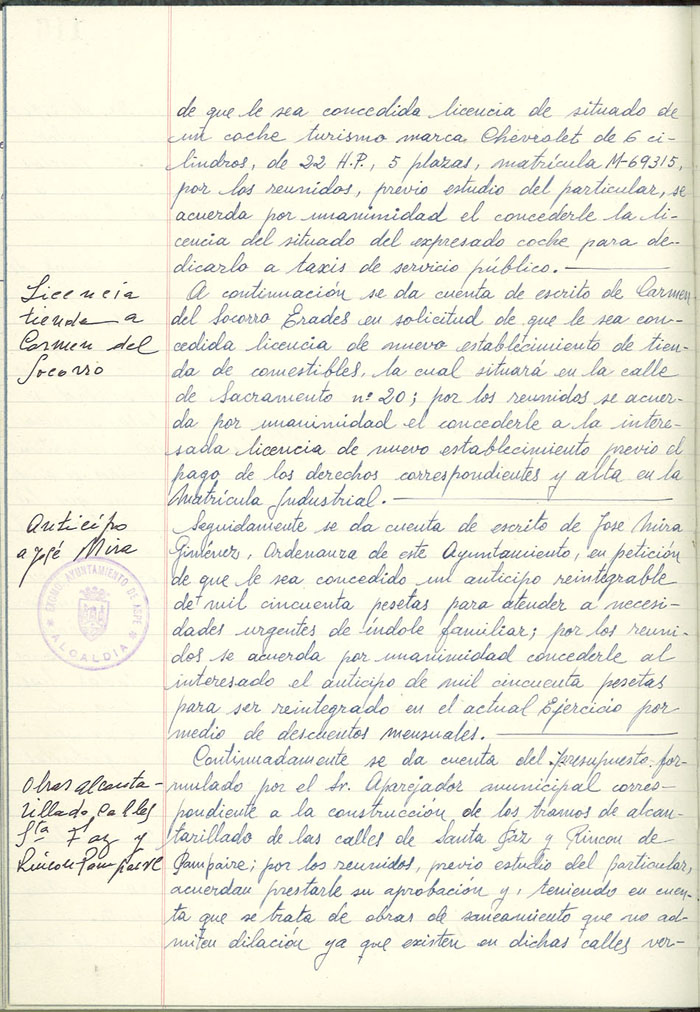 de que le sea concedida licencia de situado de
un coche turismo marca Chevrolet de 6 ci-
lindros, de 22 H.P., 5 plazas, matrícula M-69315,
por los reunidos, previo estudio del particular, se
acuerda por unanimidad el concederle la li-
cencia del situado del expresado coche para de-
dicarlo a taxis de servicio público.
Licencia
tienda a
Carmen del
Socorro
A continuación se da cuenta de escrito de Carmen
del Socorro Erades en solicitud de que le sea con-
cedida licencia de nuevo establecimiento de tien-
da de comestibles, la cual situará en la calle
de Sacramento nº 20; por los reunidos se acuer-
da por unanimidad el concederle a la intere-
sada licencia de nuevo establecimiento previo el
pago de los derechos correspondientes y alta en la
Matrícula Industrial.
Anticipo
a José Mira
EXCMO. AYUNTAMIENTO DE ASPE
ALCALDIA
Seguidamente se da cuenta de escrito de Jose Mira
Giménez, Ordenanza de este Ayuntamiento, en petición
de que le sea concedido un anticipo reintegrable
de mil cincuenta pesetas para atender a necesi-
dades urgentes de índole familiar; por los reuni-
dos se acuerda por unanimidad concederle al
interesado el anticipo de mil cincuenta pesetas
para ser reintegrado en el actual Ejercicio por
medio de descuentos mensuales.
Obras alcanta-
rillado Calles
Sta Faz y
Rincón Pampaire
Continuadamente se da cuenta del Presupuesto for-
mulado por el Sr. Aparejador municipal corres-
pondiente a la construcción de los tramos de alcan-
tarillado de las calles de Santa Faz y Rincon de
Pampaire; por los reunidos, previo estudio del particular,
acuerdan prestarle su aprobación y, teniendo en cuen-
ta que se trata de obras de saneamiento que no ad-
miten dilación ya que existen en dichas calles ver-